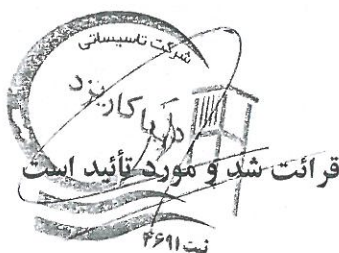 شرکت تاسیساتی
دریا کاریزد
قرائت شد و مورد تأئید است
ثبت ۴۶۹۱